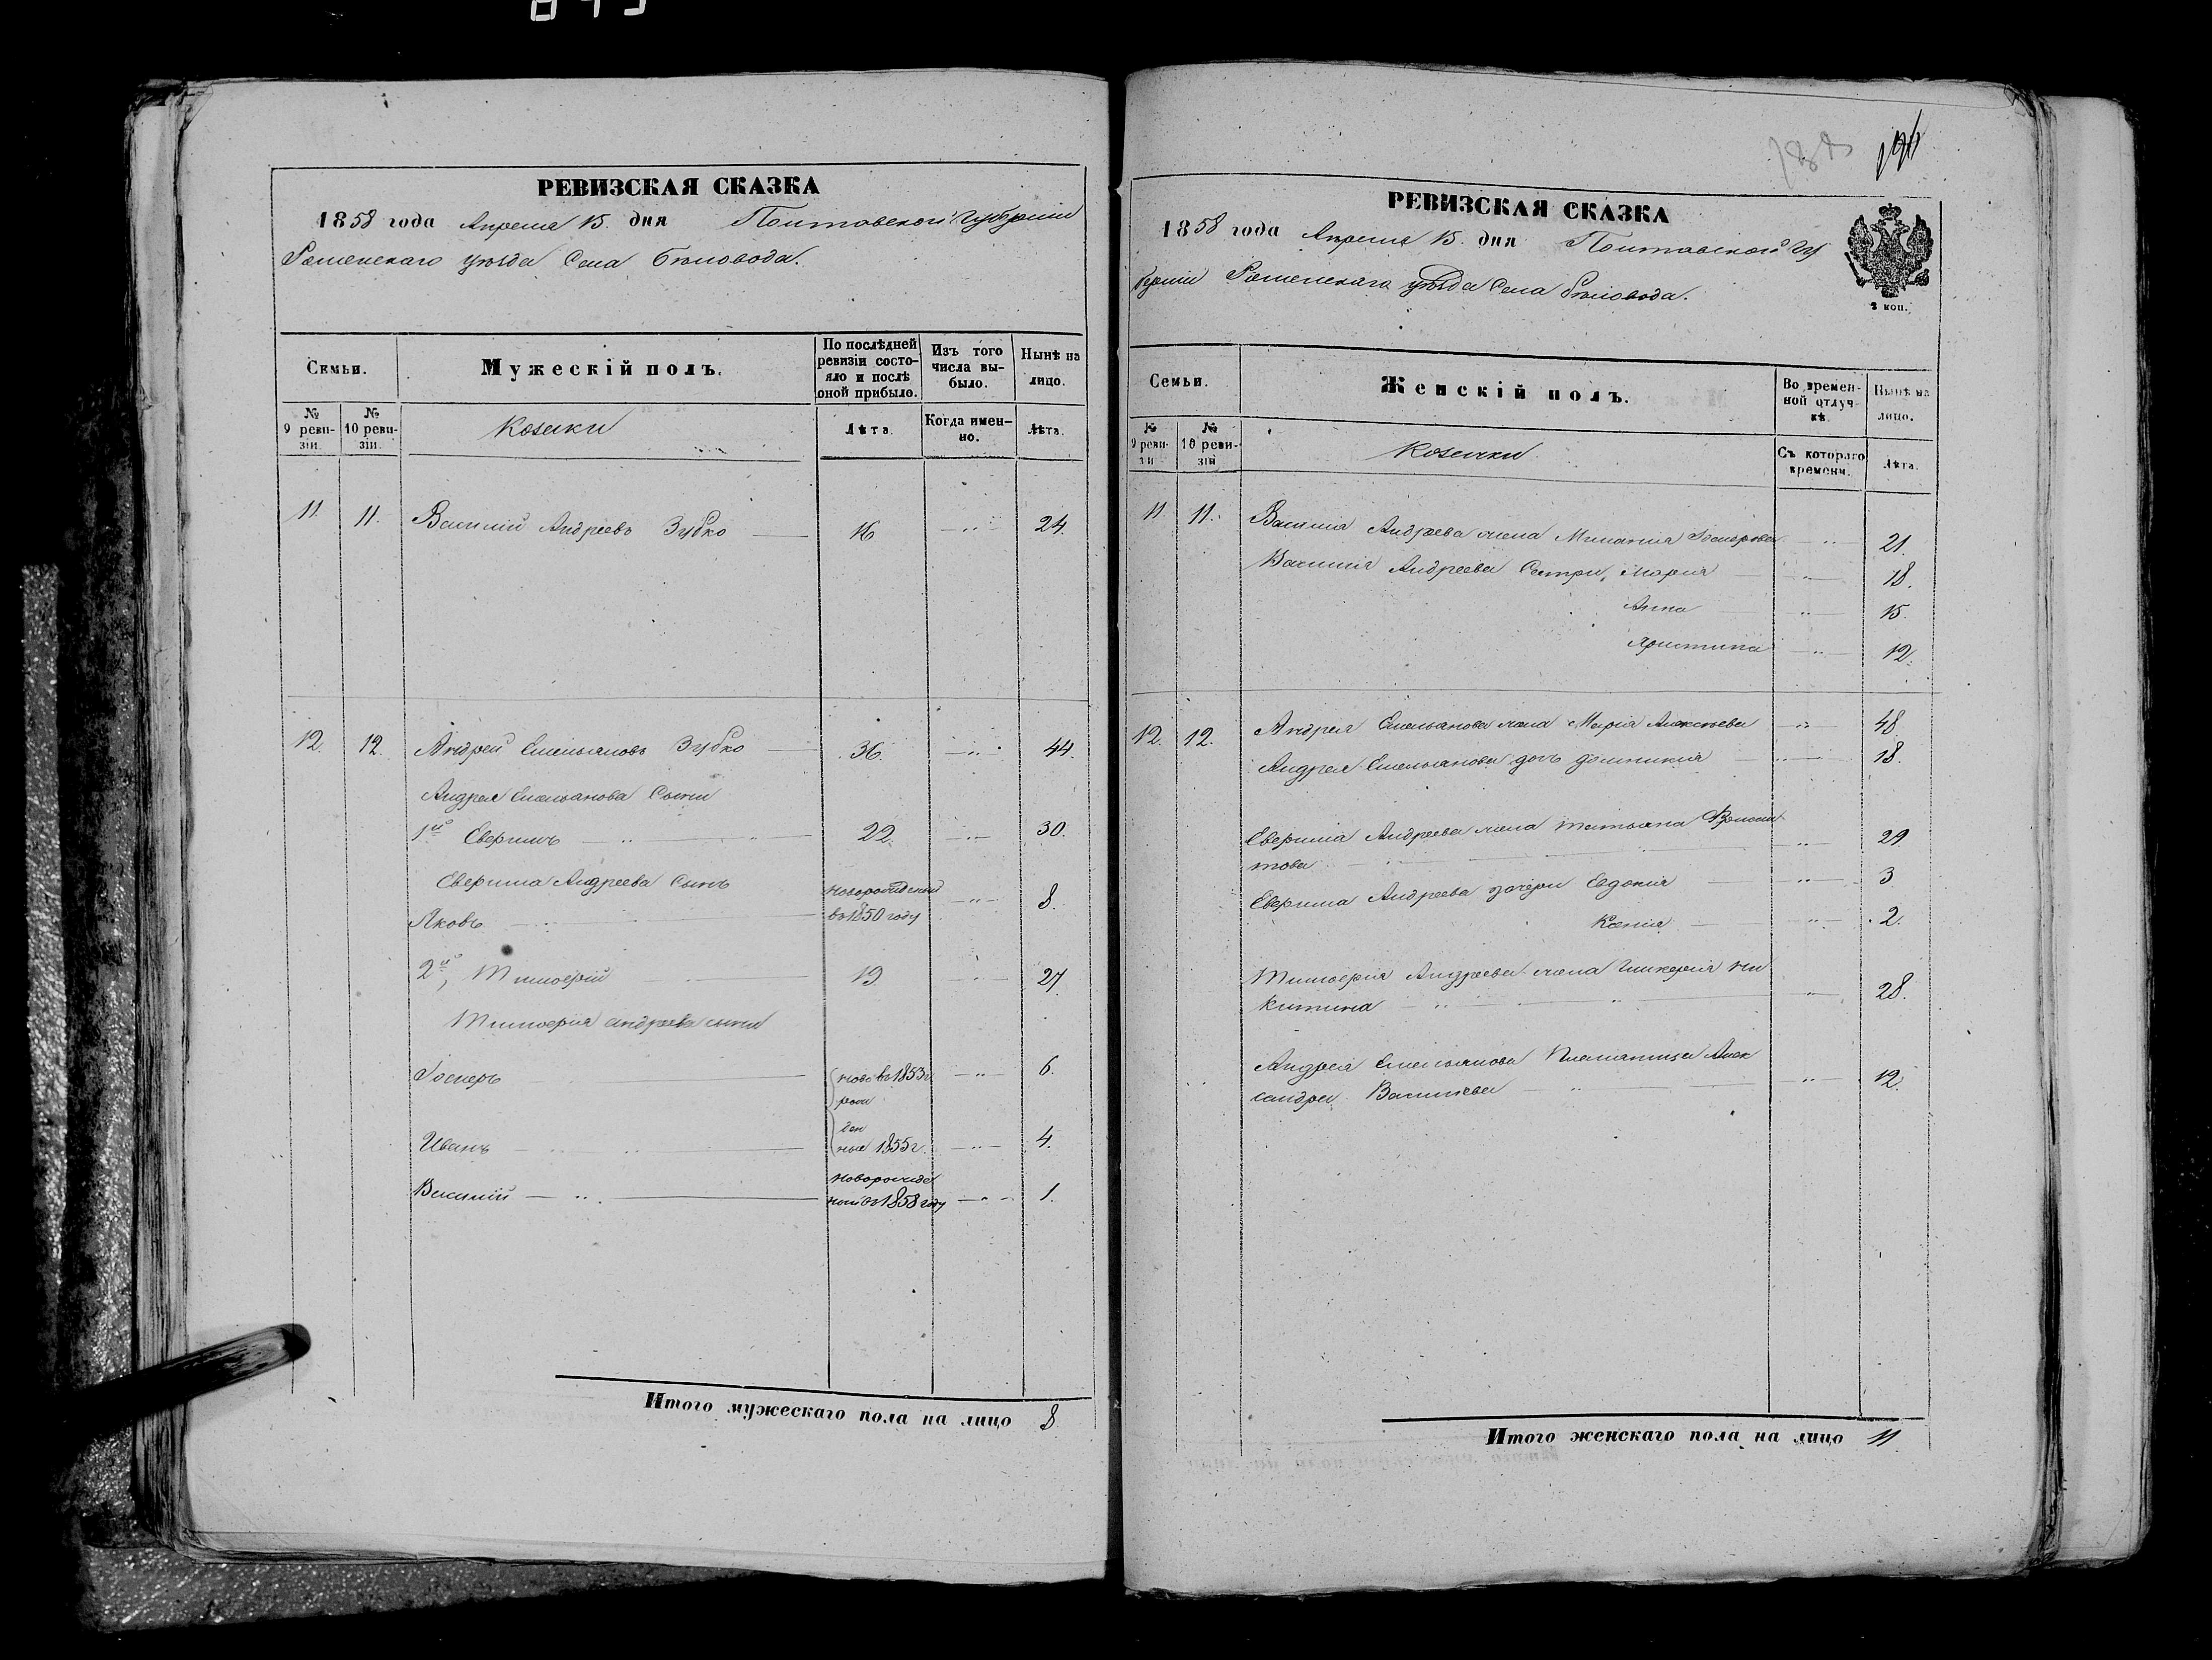 РЕВИЗСКАЯ СКАЗКА
1858 года Апреля 15. дня Полтавской Губернии
Роменскаго уѣзда Села Бѣловода.
Семьи.
Мужескій полъ.
По послѣдней ревизіи состояло и послѣ оной прибыло.
Изъ того числа выбыло.
Нынѣ на лицо.
№ 9 ревизіи.
№ 10 ревизіи.
Козаки
Лѣта.
Когда именно.
Лѣта.
11. 11. Василий Андреевъ Зубко 16 24.
12. 12. Андрей Емельяновъ Зубко 36. 44.
Андрея Емельянова Сыни
1й Сверинъ 22. 30.
Сверина Андреева Сынъ
Яковъ новорожденный въ 1850 году 8.
2й, Тимофей 19 27.
Андреева сыни
ново въ 1853 г. 6.
рож
ден
Иванъ ные 1855 г. 4.
Василий новорожде
ной въ 1858 году 1.
Итого мужескаго пола на лицо 8
РЕВИЗСКАЯ СКАЗКА
1858 года Апреля 15. дня Полтавской Гу
берніи Роменскаго уѣзда Села Бѣловода.
2 коп.
Семьи.
Женскій полъ.
Во временной отлучкѣ.
Нынѣ на лицо.
№ 9 ревизіи
№ 10 ревизій
Козачки
Съ котораго времени.
Лѣта.
11 11. Василия Андреева жена 21.
Василия Андреева Сестри, Мария 18.
Анна 15.
Христина 12.
12. 12. Андрея Емельянова жена Мария Алексѣева 48.
Андрея Емельянова дочь Домникия 18.
Андреева жена Татьяна 29
това
Андреева дочери Евдокия 3
Ксения 2.
Андреева жена Гликерия Ни
китина 28.
Андрея Емельянова Племяница Алек
сандра Василиева 12.
Итого женскаго пола на лицо 11.